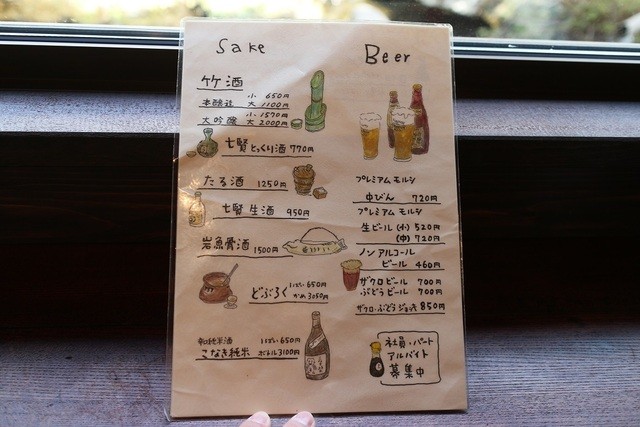 Sake
竹酒
本醸造 小 650円
大 1100円
大吟醸 小 1570円
大 2000円
七賢とっくり酒 770円
たる酒 1250円
七賢 生酒 950円
岩魚骨酒 1500円
どぶろく いっぱい 650円
かめ 3050円
辛口純米酒 いっぱい 650円
こなき純米 ボトル 3100円
Beer
プレミアム モルツ
中びん 720円
プレミアム モルツ
生ビール (小) 520円
(中) 720円
ノンアルコール
ビール 460円
ザクロビール 700円
ぶどうビール 700円
ザクロ・ぶどう ジョッキ 850円
社員・パート
アルバイト
募集中